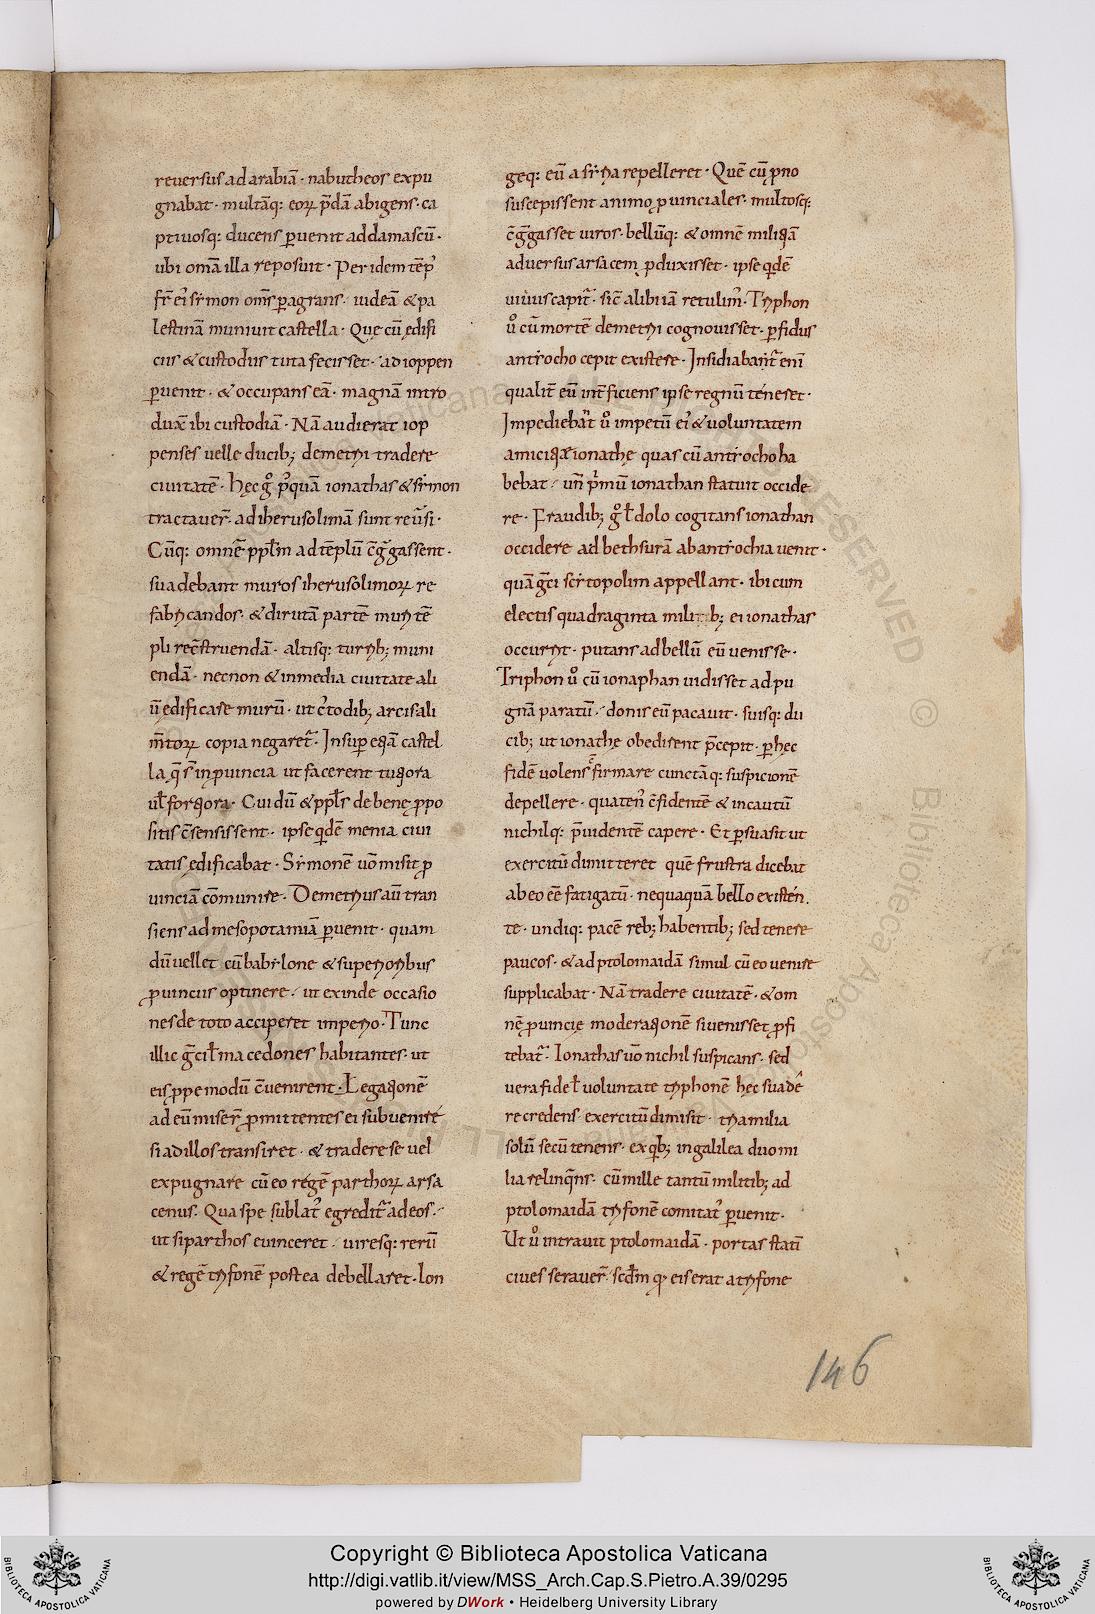 reuersus ad arabiā · nabutheos expu
gnabat · multāq: eoꝝ p̄dā abigens · ca
ptiuosq: ducens ꝑuenit ad damascū ·
ubi om̄a illa reposuit · Per idem tēp᷒
fr̄ ei᷒ sẏmon om̄s ꝑagrans · iudeā & pa
lestinā muniuit castella · Que cū edifi
ciis & custodiis tuta fecisset · ad ioppen
ꝑuenit · & occupans eā · magnā intro
dux̄ ibi custodiā · Nā audierat iop
penses uelle ducib; demetrii tradere
ciuitatē · Hęc g° p᷒quā ionathas & sẏmon
tractauer̄ · ad iherusolimā sunt reu̾si ·
Cūq: omnē ppl̄m ad tēplū c̄g̾gassent ·
suadebant muros iherusolimoꝝ re
fabricandos · & dirutā partē muri tē
pli rec̄struendā · altisq: turrib; muni
endā · necnon & in media ciuitate ali
ū ędificare murū · ut c᷒todib; arcis ali
m̄toꝝ copia negaret᷑ · Insuꝑ etiā castel
la q̄ s̄ in ꝓuincia ut facerent tutiora
ul̄ fortiora · Cui dū & ppl̄s de bene ꝓpo
sitis c̄sensissent · ipse qͥdē menia ciui
tatis ędificabat · Sẏmonē uō misit ꝓ
uinciā cōmunire · Demetrius aū tran
siens ad mesopotamiā ꝑuenit · quam
dū uellet cū babẏlone & superioribus
ꝓuinciis optinere · ut exinde occasio
nes de toto acciperet imperio · Tunc
illic g̾ci ł macedones habitantes · ut
eis ꝓpe modū c̄uenirent · Legationē
ad eū miser̄ ꝓmittentes ei subuenire
si ad illos transiret · & tradere se uel
expugnare cū eo regē parthoꝝ arsa
cenus · Qua spe sublat᷒ egredit᷑ ad eos ·
ut si parthos euinceret · uiresq: rerū
& regē trifonē postea debellaret · Lon
geq: eū a sẏria repelleret · Quē cū ꝓno
suscepissent animo ꝓuinciales · multosq:
c̄g̾gasset uiros · bellūq: & omnē militiā
aduersus arsacem ꝓduxisset · ipse qͥdē
uiuus capit᷑ · sic̄ alibi iā retulim᷒ · Triphon
u° cū mortē demetrii cognouisset · ꝑfidus
antiocho cepit existere · Insidiabant᷑ enī
qualit̄ eū int̄ficiens ipse regnū teneret ·
Impediebat᷑ u° impetū ei᷒ & uoluntatem
amicitiæ ionathę quas cū antiocho ha
bebat · un̄ pͥmū ionathan statuit occide
re · Fraudib; g° ł dolo cogitans ionathan
occidere ad bethsurā ab antiochia uenit ·
quā g̾ci scẏtopolim appellant · ibi cum
electis quadraginta militib; ei ionathas
occurrit · putans ad bellū eū uenisse ·
Triphon u° cū ionaphan uidisset ad pu
gnā paratū · donis eū pacauit · suisq: du
cib; ut ionathę obedirent p̄cepit · ꝑ hęc
fidē uolens firmare cunctāq: suspicionē
depellere · quaten᷒ c̄fidentē & incautū
nichilq: p̄uidentē capere · Et ꝑsuasit ut
exercitū dimitteret quē frustra dicebat
ab eo eē fatigatū · nequaquā bello existen
te · undiq: pacē reb; habentib; sed tenere
paucos · & ad ptolomaidā simul cū eo uenire
supplicabat · Nā tradere ciuitatē · & om
nē ꝓuincię moderationē si uenisset ꝓfi
tebat᷑ · Ionathas uō nichil suspicans · sed
uera fide ł uoluntate triphonē hęc suadē
re credens · exercitū dimisit · tria milia
solū secū tenens · ex qͥb; in galilea duo mi
lia relinq̄ns · cū mille tantū militib; ad
ptolomaidā trifonē comitat᷒ ꝑuenit ·
Ut u° intrauit ptolomaidā · portas statī
ciues serauer̄ · scd̄m qđ eis erat a trifone
146
Copyright © Biblioteca Apostolica Vaticana
http://digi.vatlib.it/view/MSS_Arch.Cap.S.Pietro.A.39/0295
powered by DWork • Heidelberg University Library
BIBLIOTECA APOSTOLICA VATICANA
BIBLIOTECA APOSTOLICA VATICANA